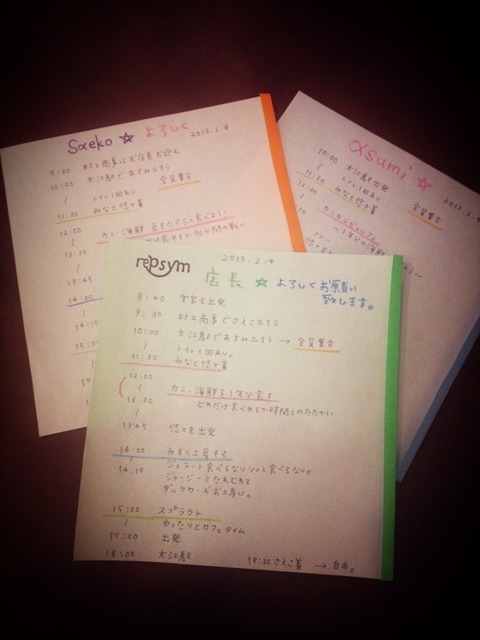 Saeko☆ よろしく
2013.2.4
9:30 村上商事にお店長お迎え
10:00 大江駅であすみひろう
全員集合
トイレ1回あり
11:30 みなと悠々着
12:00
カニ・海鮮
90分間の戦い
13:30
13:45
14:00
14:15
15:00
αsumi☆
2013.2.4
10:00 大江駅を出発
トイレ1回あり
全員集合
11:30 みなと悠々着
12:00
repsym
2013.2.4
店長☆よろしくお願い
致します。
8:40 自宅を出発
9:30 村上商事でさえこひろう
10:00 大江駅であすみひろう → 全員集合
トイレ1回あり。
11:30 みなと悠々着
12:00
カニ・海鮮を1年分食す
13:30 どれだけ食べれるか時間とのたたかい
13:45 悠々を出発
14:00 みるく工房そら
14:15 ジェラート食べるなりソフト食べるなり。
ジャージーとたわむれる
ダックワーズお土産に。
15:00 スプラウト
ゆったりとカフェタイム
17:00 出発
18:00 大江駅
18:30 さえこ着 → 自由。